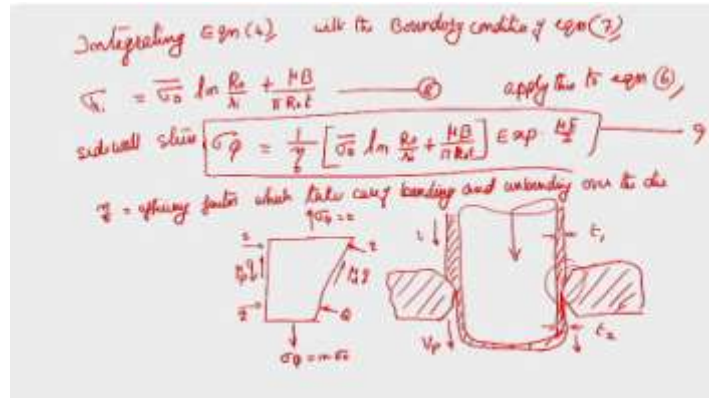 Integrating Eqn (4) with the Boundary condition of eqn (7)
σri = σ̄0 ln R0/ri + μB/πR0t ——— ⑧ apply this to eqn ⑥,
side wall stress σφ = 1/η [σ̄0 ln R0/ri + μB/πR0t] Exp μπ/2 ——— 9
η = efficiency factor which take care of bending and unbending over the die
t1
t2
Vp